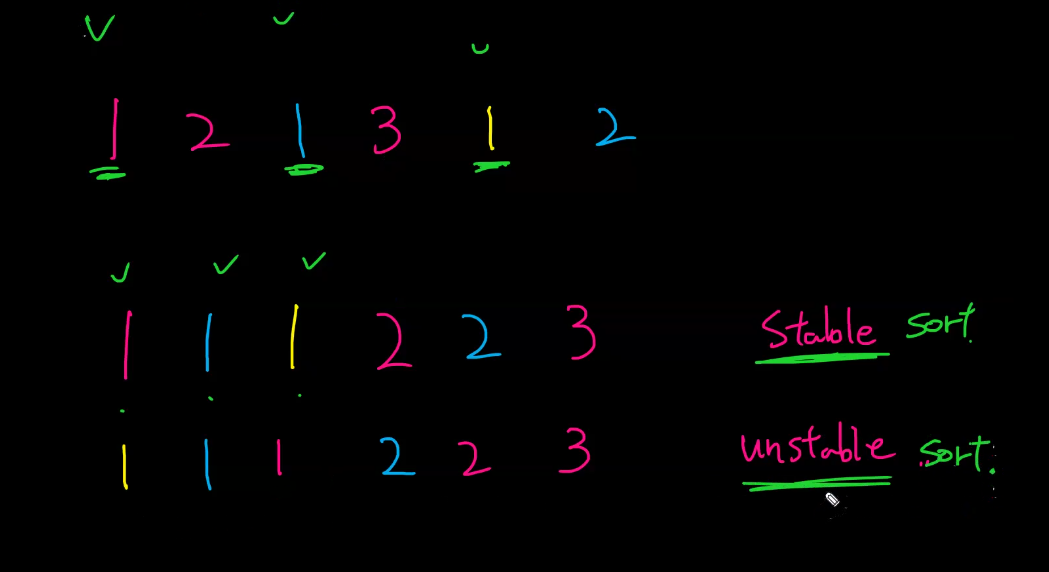 1 2 1 3 1 2
1 1 1 2 2 3 Stable sort
1 1 1 2 2 3 unstable sort.